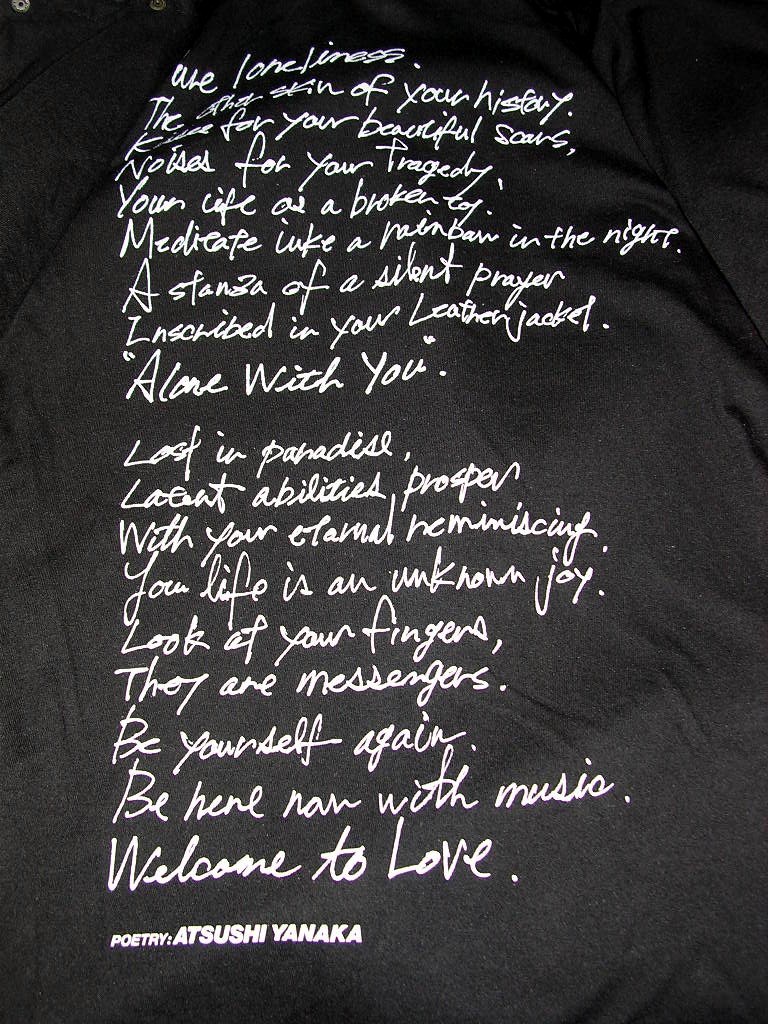 are loneliness.
The other skin of your history.
for your beautiful scars,
Noises for your Tragedy.
Your life as a broken toy.
Meditate like a rainbow in the night.
A stanza of a silent prayer
Inscribed in your Leather jacket.
"Alone With You".
Lost in paradise,
Latent abilities prosper
With your eternal reminiscing.
Your life is an unknown joy.
Look at your fingers,
They are messengers.
Be yourself again.
Be here now with music.
Welcome to Love.
POETRY: ATSUSHI YANAKA